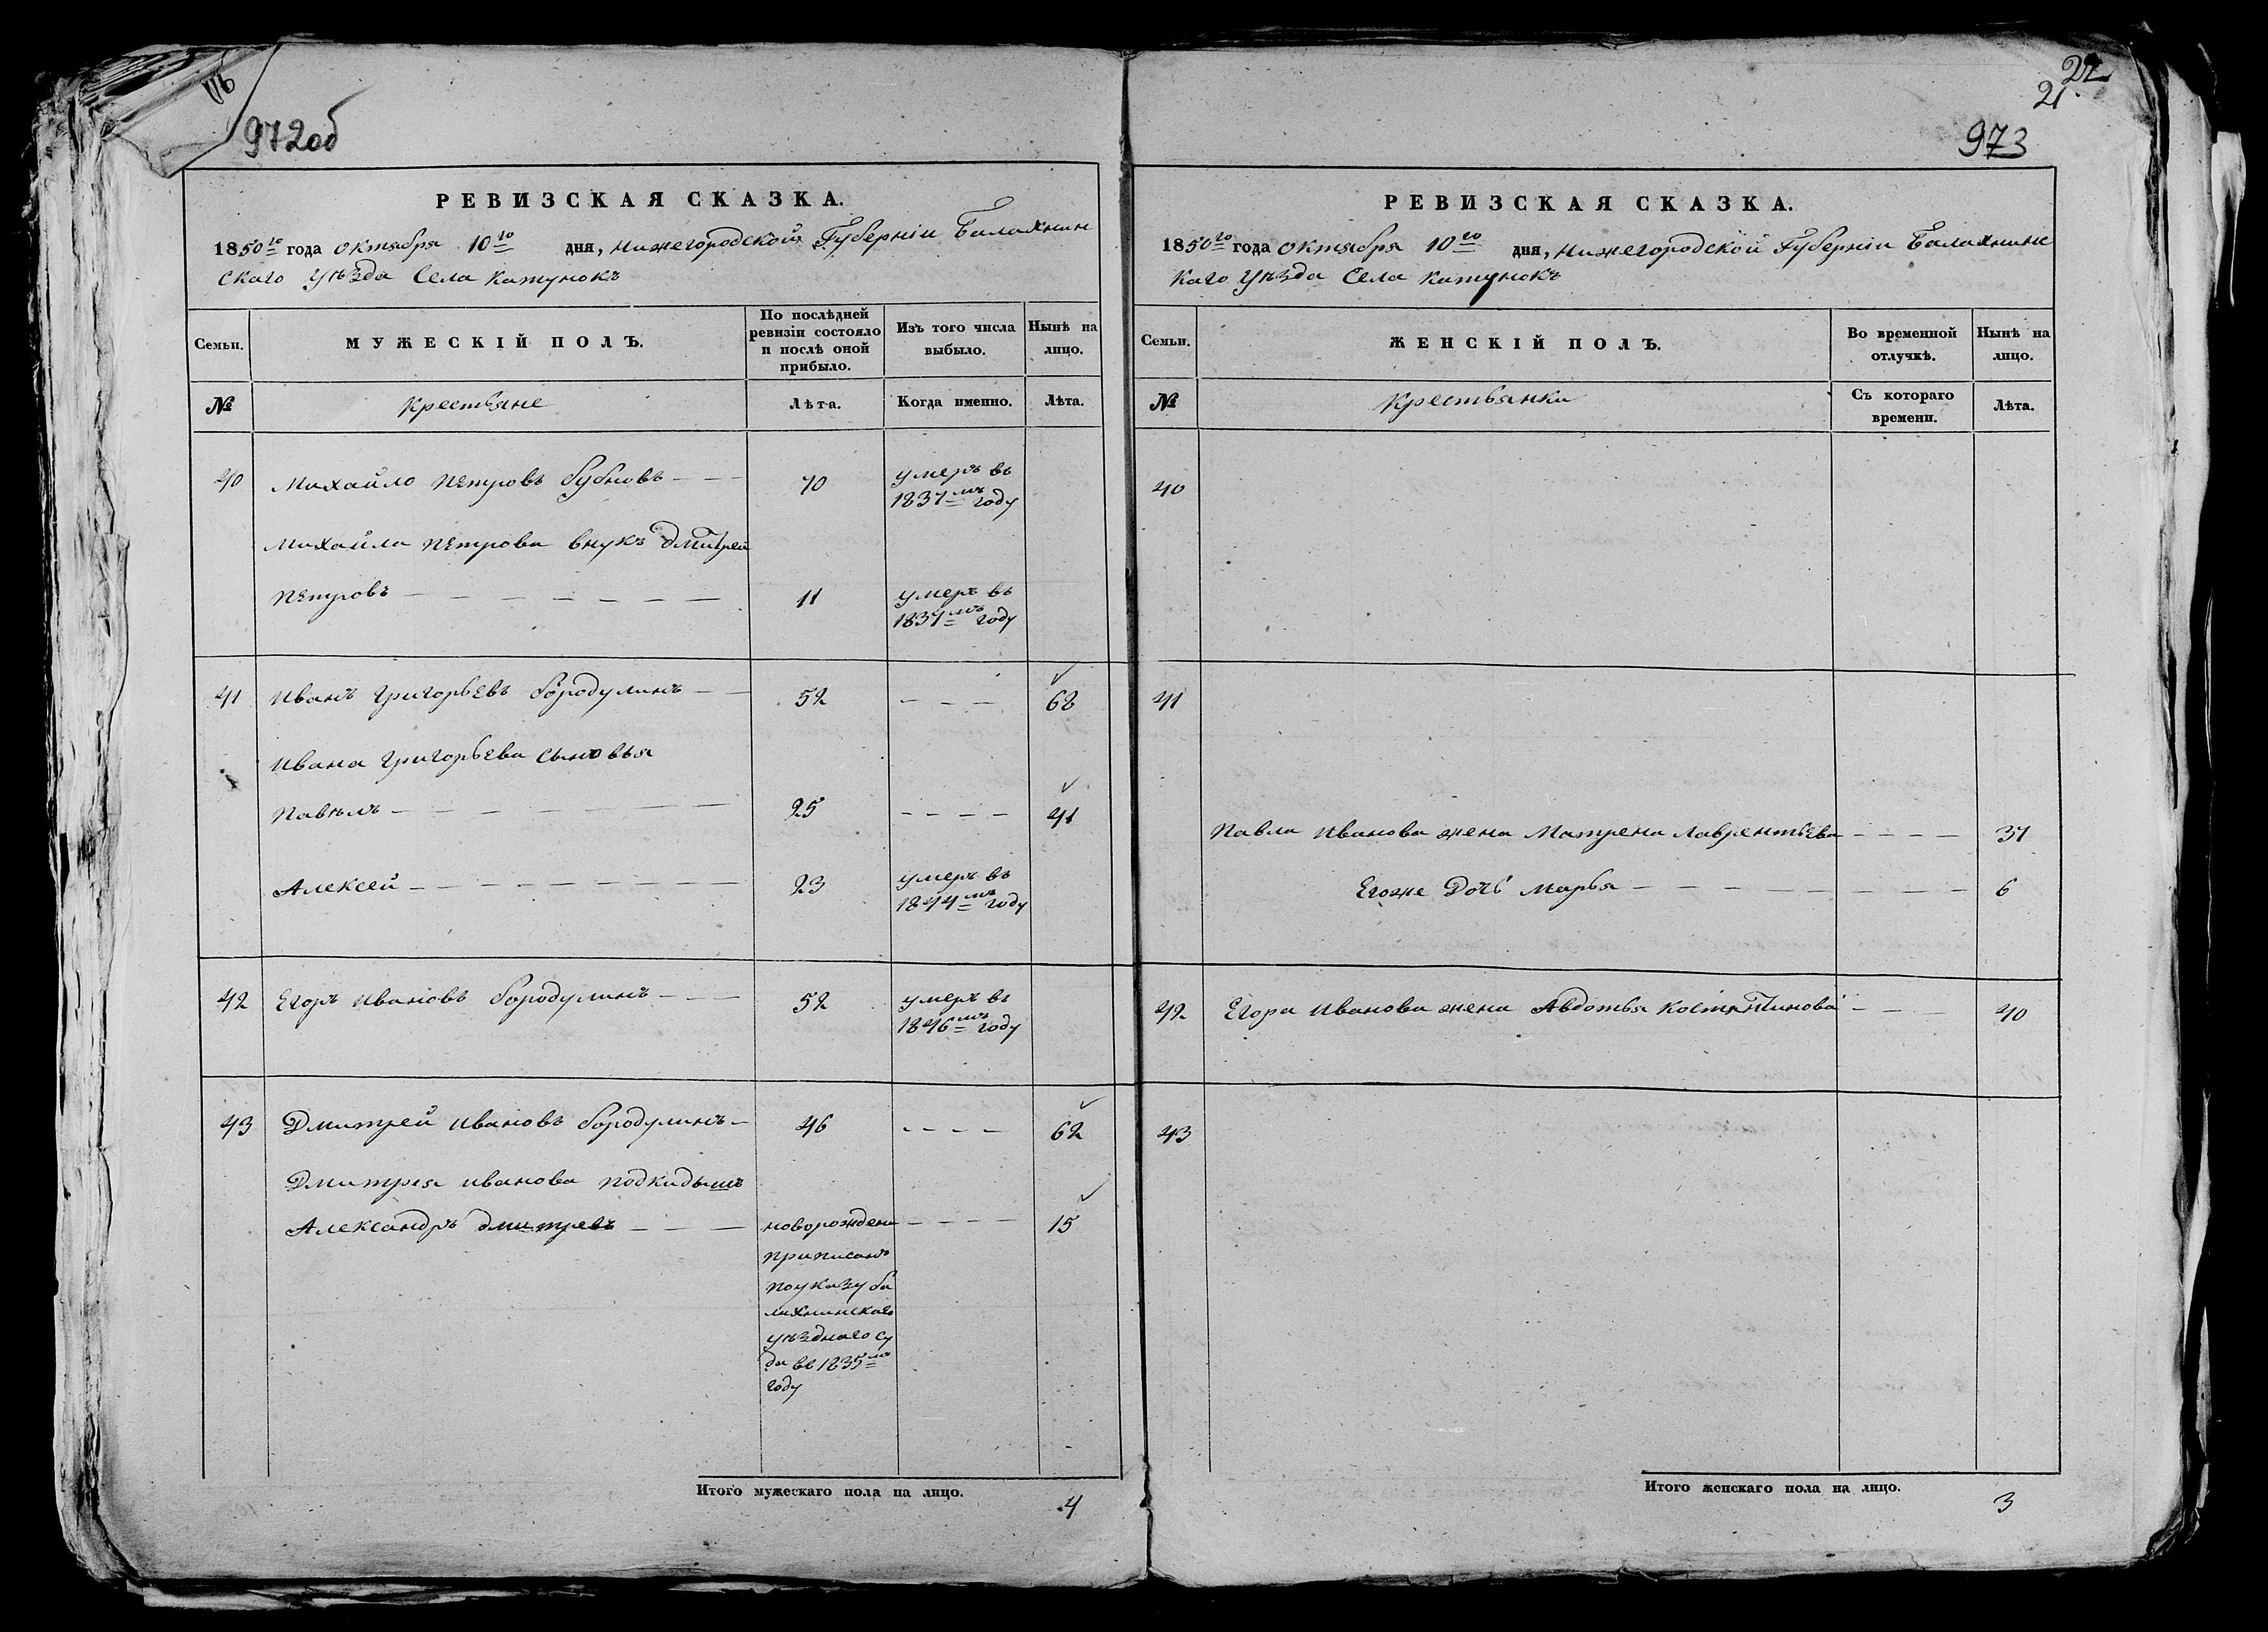 972об
РЕВИЗСКАЯ СКАЗКА.
1850го года октября 10го дня, Нижегородской Губерніи Балахнин
скаго Уѣзда Села Катунокъ
Семьи.
МУЖЕСКІЙ ПОЛЪ.
По послѣдней
ревизіи состояло
и послѣ оной
прибыло.
Изъ того числа
выбыло.
Нынѣ на
лицо.
№
Крестьяне
Лѣта.
Когда именно.
Лѣта.
40 Михайло Петровъ Бубновъ 70 умеръ въ
1837мъ году
Михайла Петрова внукъ Дмитрей
Петровъ 11 умеръ въ
1837мъ году
41 Иванъ Григорьевъ Бородулинъ 52 68
Ивана Григорьева сыновья
Павѣлъ 25 41
Алексей 23 умеръ въ
1844мъ году
42 Егоръ Ивановъ Бородулинъ 52 умеръ въ
1846мъ году
43 Дмитрей Ивановъ Бородулинъ 46 62
Дмитрея Иванова подкидышъ
Александръ Дмитревъ новорожден 15
приписанъ
поуказу ба
лахнинскаго
уѣзднаго су
да въ 1835мъ
году
Итого мужескаго пола на лицо. 4
22
21
973
РЕВИЗСКАЯ СКАЗКА.
1850го года октября 10го дня, Нижегородской Губерніи Балахнинс
каго Уѣзда Села Катунокъ
Семьи.
ЖЕНСКІЙ ПОЛЪ.
Во временной
отлучкѣ.
Нынѣ на
лицо.
№
Крестьянки
Съ котораго
времени.
Лѣта.
40
41
Павла Иванова жена Матрена Лаврентьева 37
Егоже Дочь Марья 6
42 Егора Иванова жена Авдотья Костянтинова 40
43
Итого женскаго пола на лицо. 3